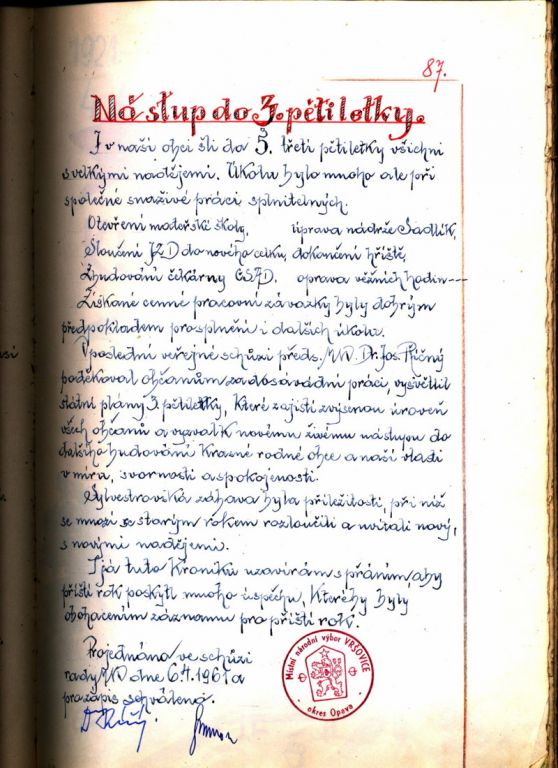 87.
Nástup do 3. pětiletky.
I v naši obci šli do 3. třetí pětiletky všichni
s velkými nadějemi. Úkolu bylo mnoho ale při
společné snaživé práci splnitelných.
Otevření mateřské školy, úprava nádrže Sadlík,
Sloučení JZD do nového celku, dokončení hřiště,
Zbudování čekárny ČSAD. oprava věžních hodin---
Získané cenné pracovní závazky byly dobrým
předpokladem pro splnění i dalších úkolu.
V poslední veřejné schůzi předs. MNV. Dr. Jos.
poděkoval občanům za dosavádní práci, vysvětlil
státní plány 3. pětiletky, které zajistí zvýšenou úroveň
všech občanů a vyzval k novému živému nástupu do
dalšího budování krásné rodné obce a naší vlasti
v míru, svornosti a spokojenosti.
Sylvestrovská zábava byla příležitostí, při níž
se mnozí se starým rokem rozloučili a uvítali nový,
s novými nadějemi.
I já tuto kroniku uzavírám s přáním, aby
příští rok poskytl mnoho úspěchu, které by byly
obohacením záznamu pro příští rok.
Projednáno ve schůzi
rady MNV dne 1961 a
pro zápis schváleno.
Místní národní výbor VRŠOVICE
okres Opava